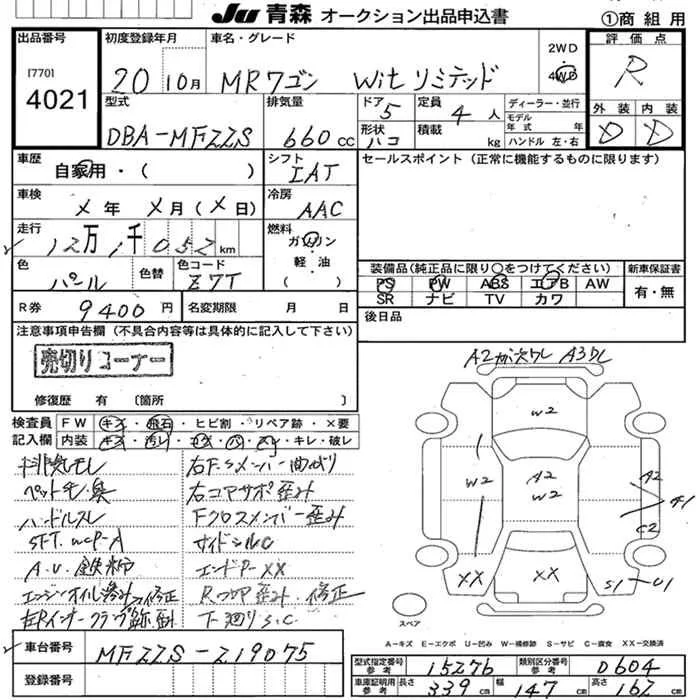 JU 青森 オークション出品申込書
①商組用
出品番号
[770]
4021
初度登録年月
20 10月
車名・グレード
MRワゴン Wit リミテッド
2WD
4WD
評価点
R
型式
DBA-MF22S
排気量
660 CC
ドア 5
形状 ハコ
定員 4 人
積載 kg
ディーラー・並行
モデル年式 年
ハンドル 左・右
外装 D
内装 D
車歴
自家用・( )
シフト
IAT
セールスポイント(正常に機能するものに限ります)
車検
メ年 メ月(メ日)
冷房
AAC
走行
12万 1千 052 km
燃料
ガソリン
軽・油
( )
色
パール
色替
色コード
Z7T
装備品(純正品に限り○をつけてください)
PS PW ABS エアB AW
SR ナビ TV カワ
新車保証書
有・無
R券 9400円
名変期限 月 日
後日品
注意事項申告欄(不具合内容等は具体的に記入して下さい)
売切りコーナー
修復歴 有 〔箇所 〕
検査員記入欄
FW キズ・飛石・ヒビ割・リペア跡・×要
内装 キズ・汚レ・コゲ・ハ・スレ・キレ・破レ
排気モレ
ペット毛・臭
ハンドルスレ
A.U.鉄粉
右F.Sメンバー曲がり
右コアサポ歪み
Fクロスメンバー歪み
サイドシルC
エンドP-XX
下廻りS.C
A3
W2
W2
A2
W2
A2
A1
C2
XX
XX
S1
U1
スペア
A-キズ E-エクボ U-凹み W-補修跡 S-サビ C-腐食 XX-交換済
車台番号
MF22S-219075
登録番号
型式指定番号 参考 15276
類別区分番号 参考 0604
車庫証明用 参考 長さ 339 cm 幅 147 cm 高さ 162 cm